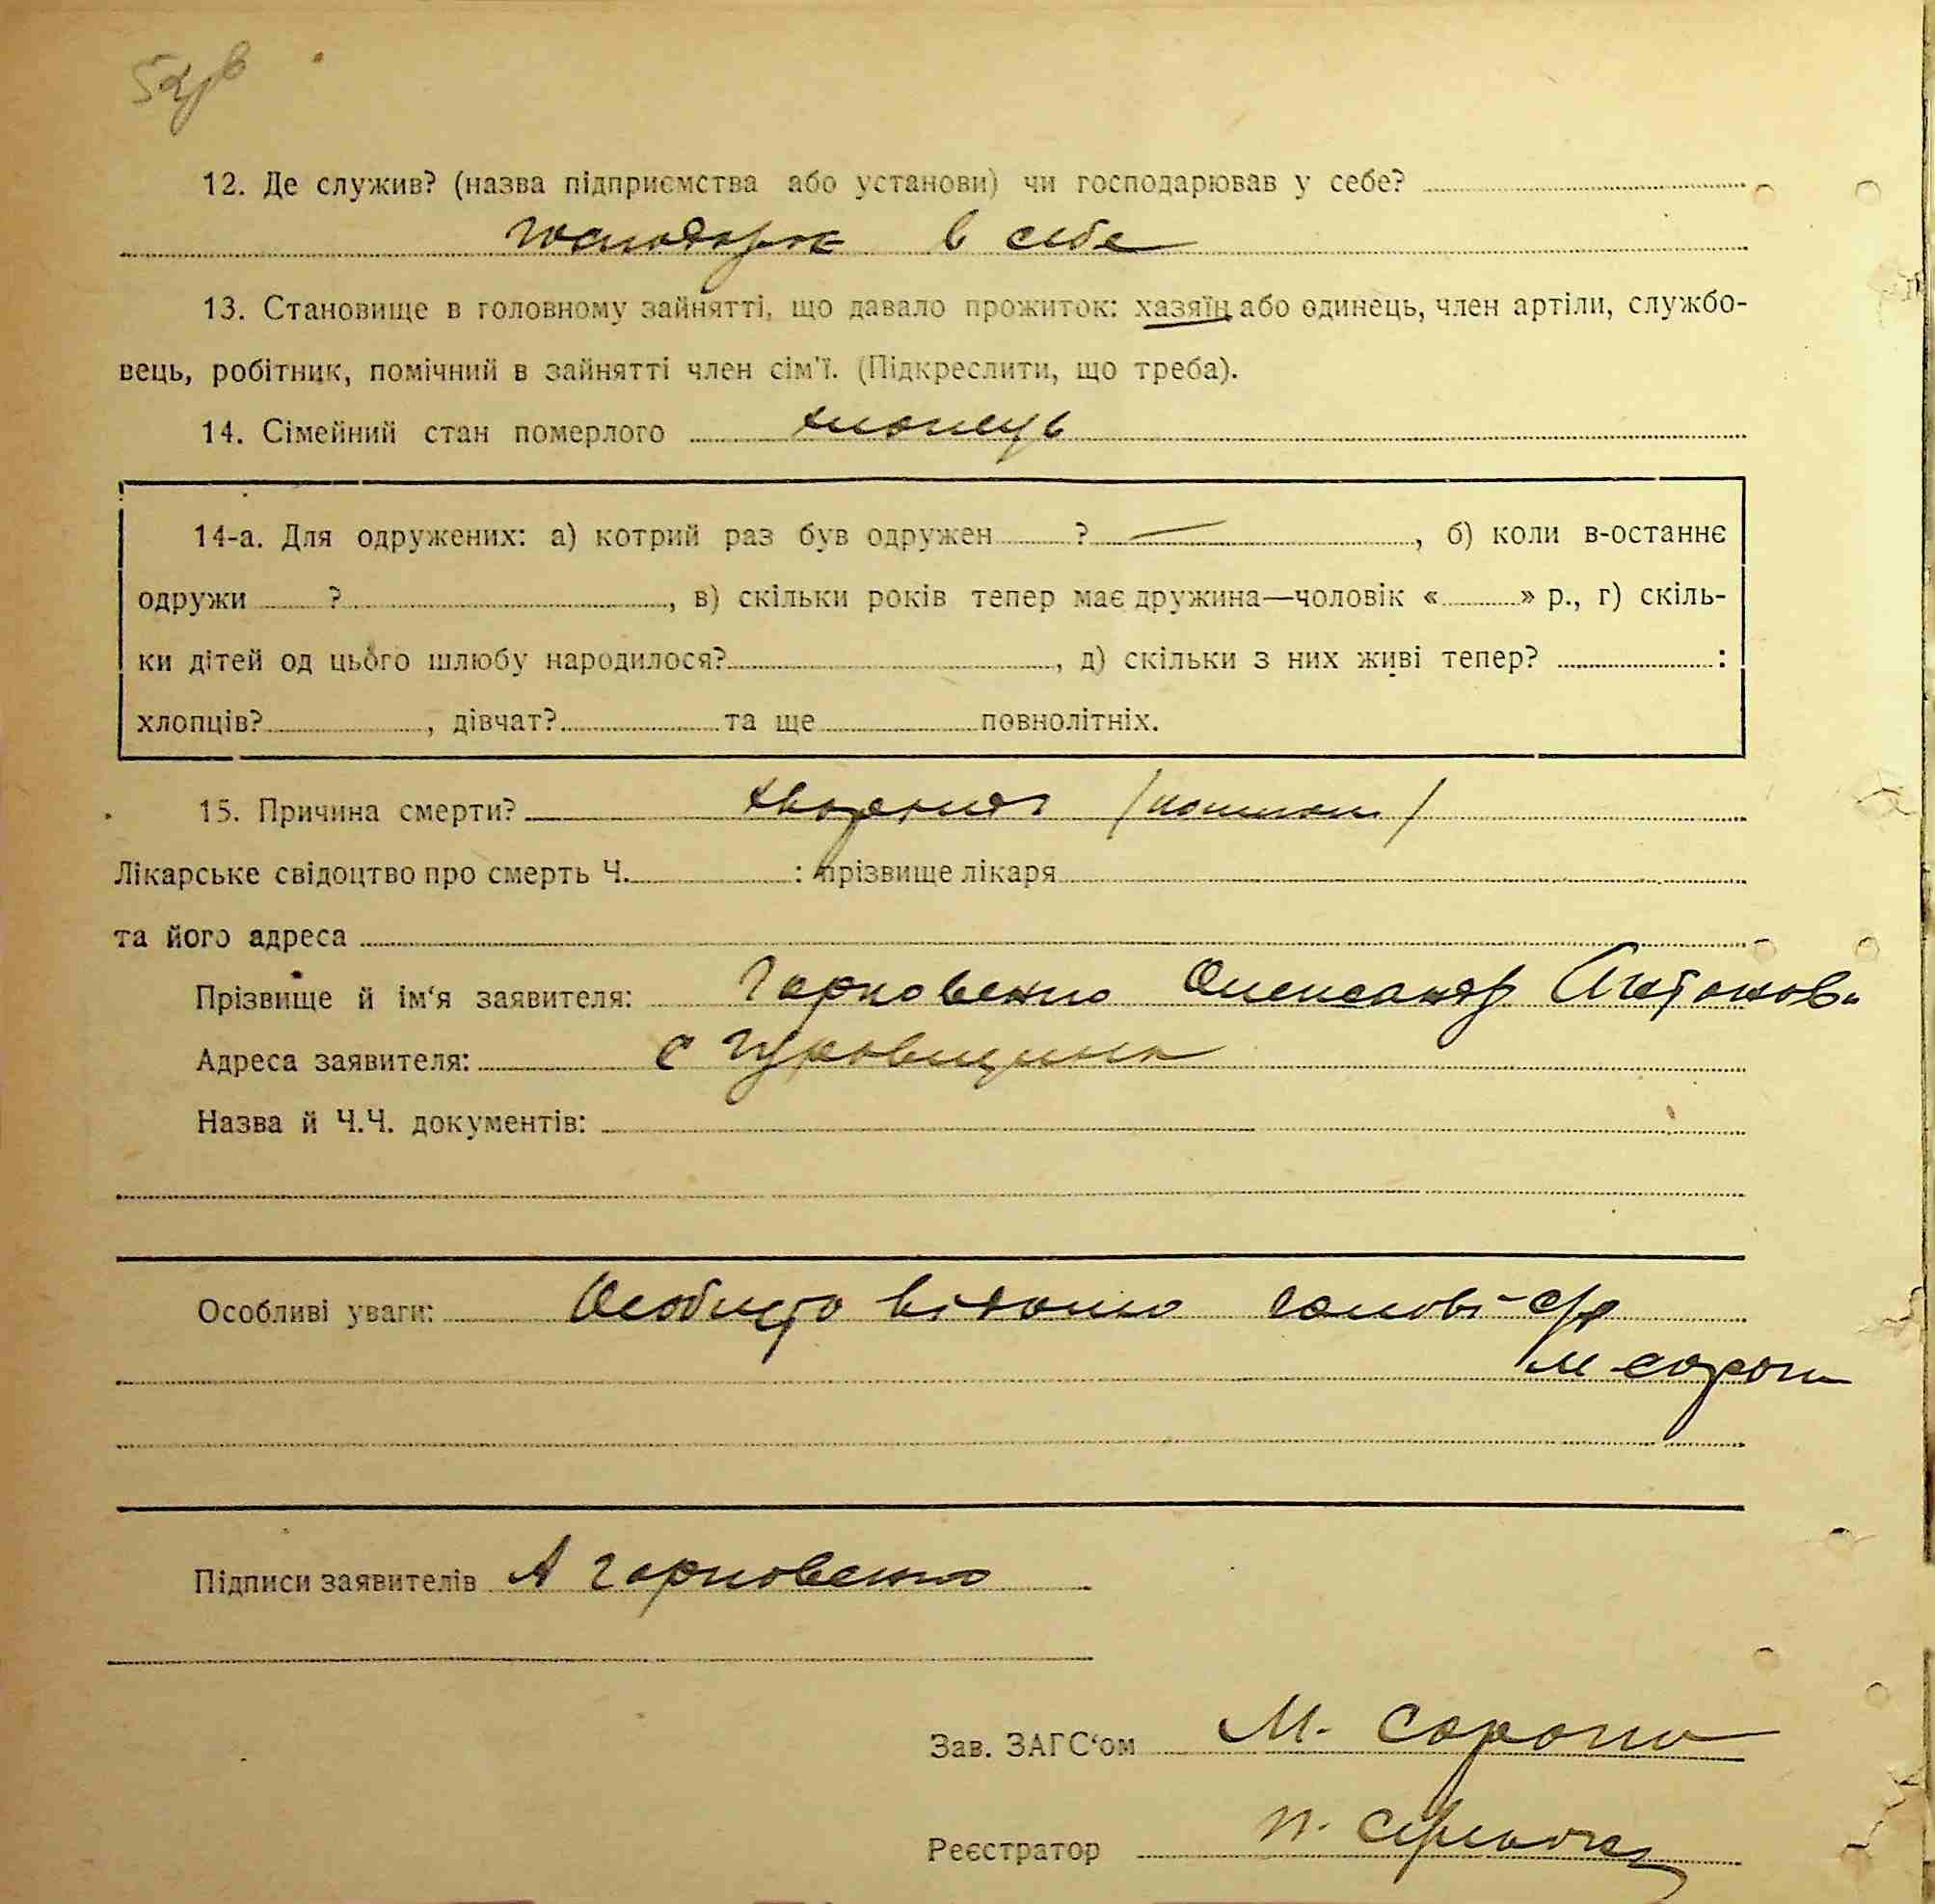 12. Де служив? (назва підприємства або установи) чи господарював у себе?
господарює в себе
13. Становище в головному зайнятті, що давало прожиток: хазяїн або одинець, член артіли, службо-
вець, робітник, помічний в зайнятті член сім'ї. (Підкреслити, що треба).
14. Сімейний стан померлого хлопець
14-а. Для одружених: а) котрий раз був одружен ? —, б) коли в-останнє
одружи ? , в) скільки років тепер має дружина—чоловік « » р., г) скіль-
ки дітей од цього шлюбу народилося? , д) скільки з них живі тепер? :
хлопців? , дівчат? та ще повнолітніх.
15. Причина смерти?
Лікарське свідоцтво про смерть Ч. : прізвище лікаря
та його адреса
Прізвище й ім‘я заявителя: Гарковенко Олександр
Адреса заявителя: с
Назва й Ч.Ч. документів:
Особливі уваги: Особисто відомо голові с/р
М Сорока
Підписи заявителів А Гарковенко
Зав. ЗАГС‘ом М. Сороко
Реєстратор П.